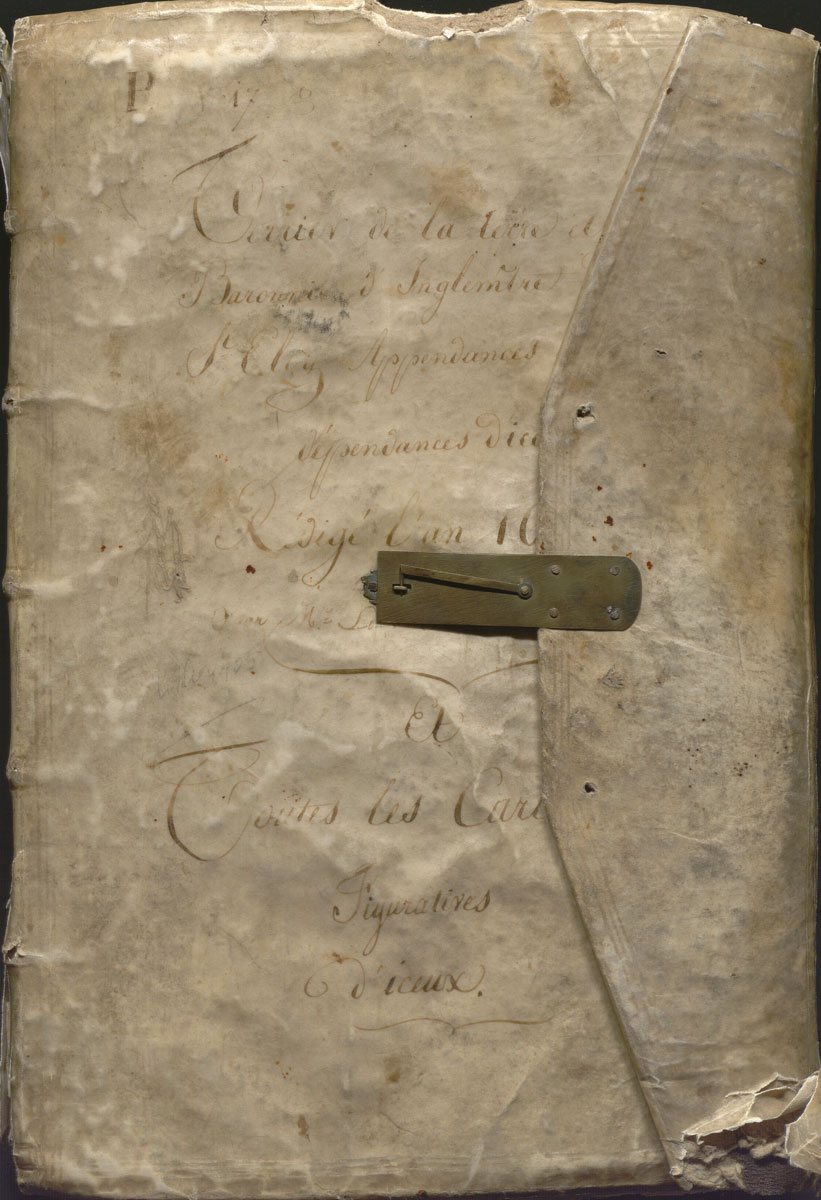 P
Terrier de la terre et
Baronnie d'Inglembre
St Eloy Appendances
dépendances d'ice
Rédigé l'an 16
par Mre
Et
Toutes les Cart
Figuratives
d'iceux.